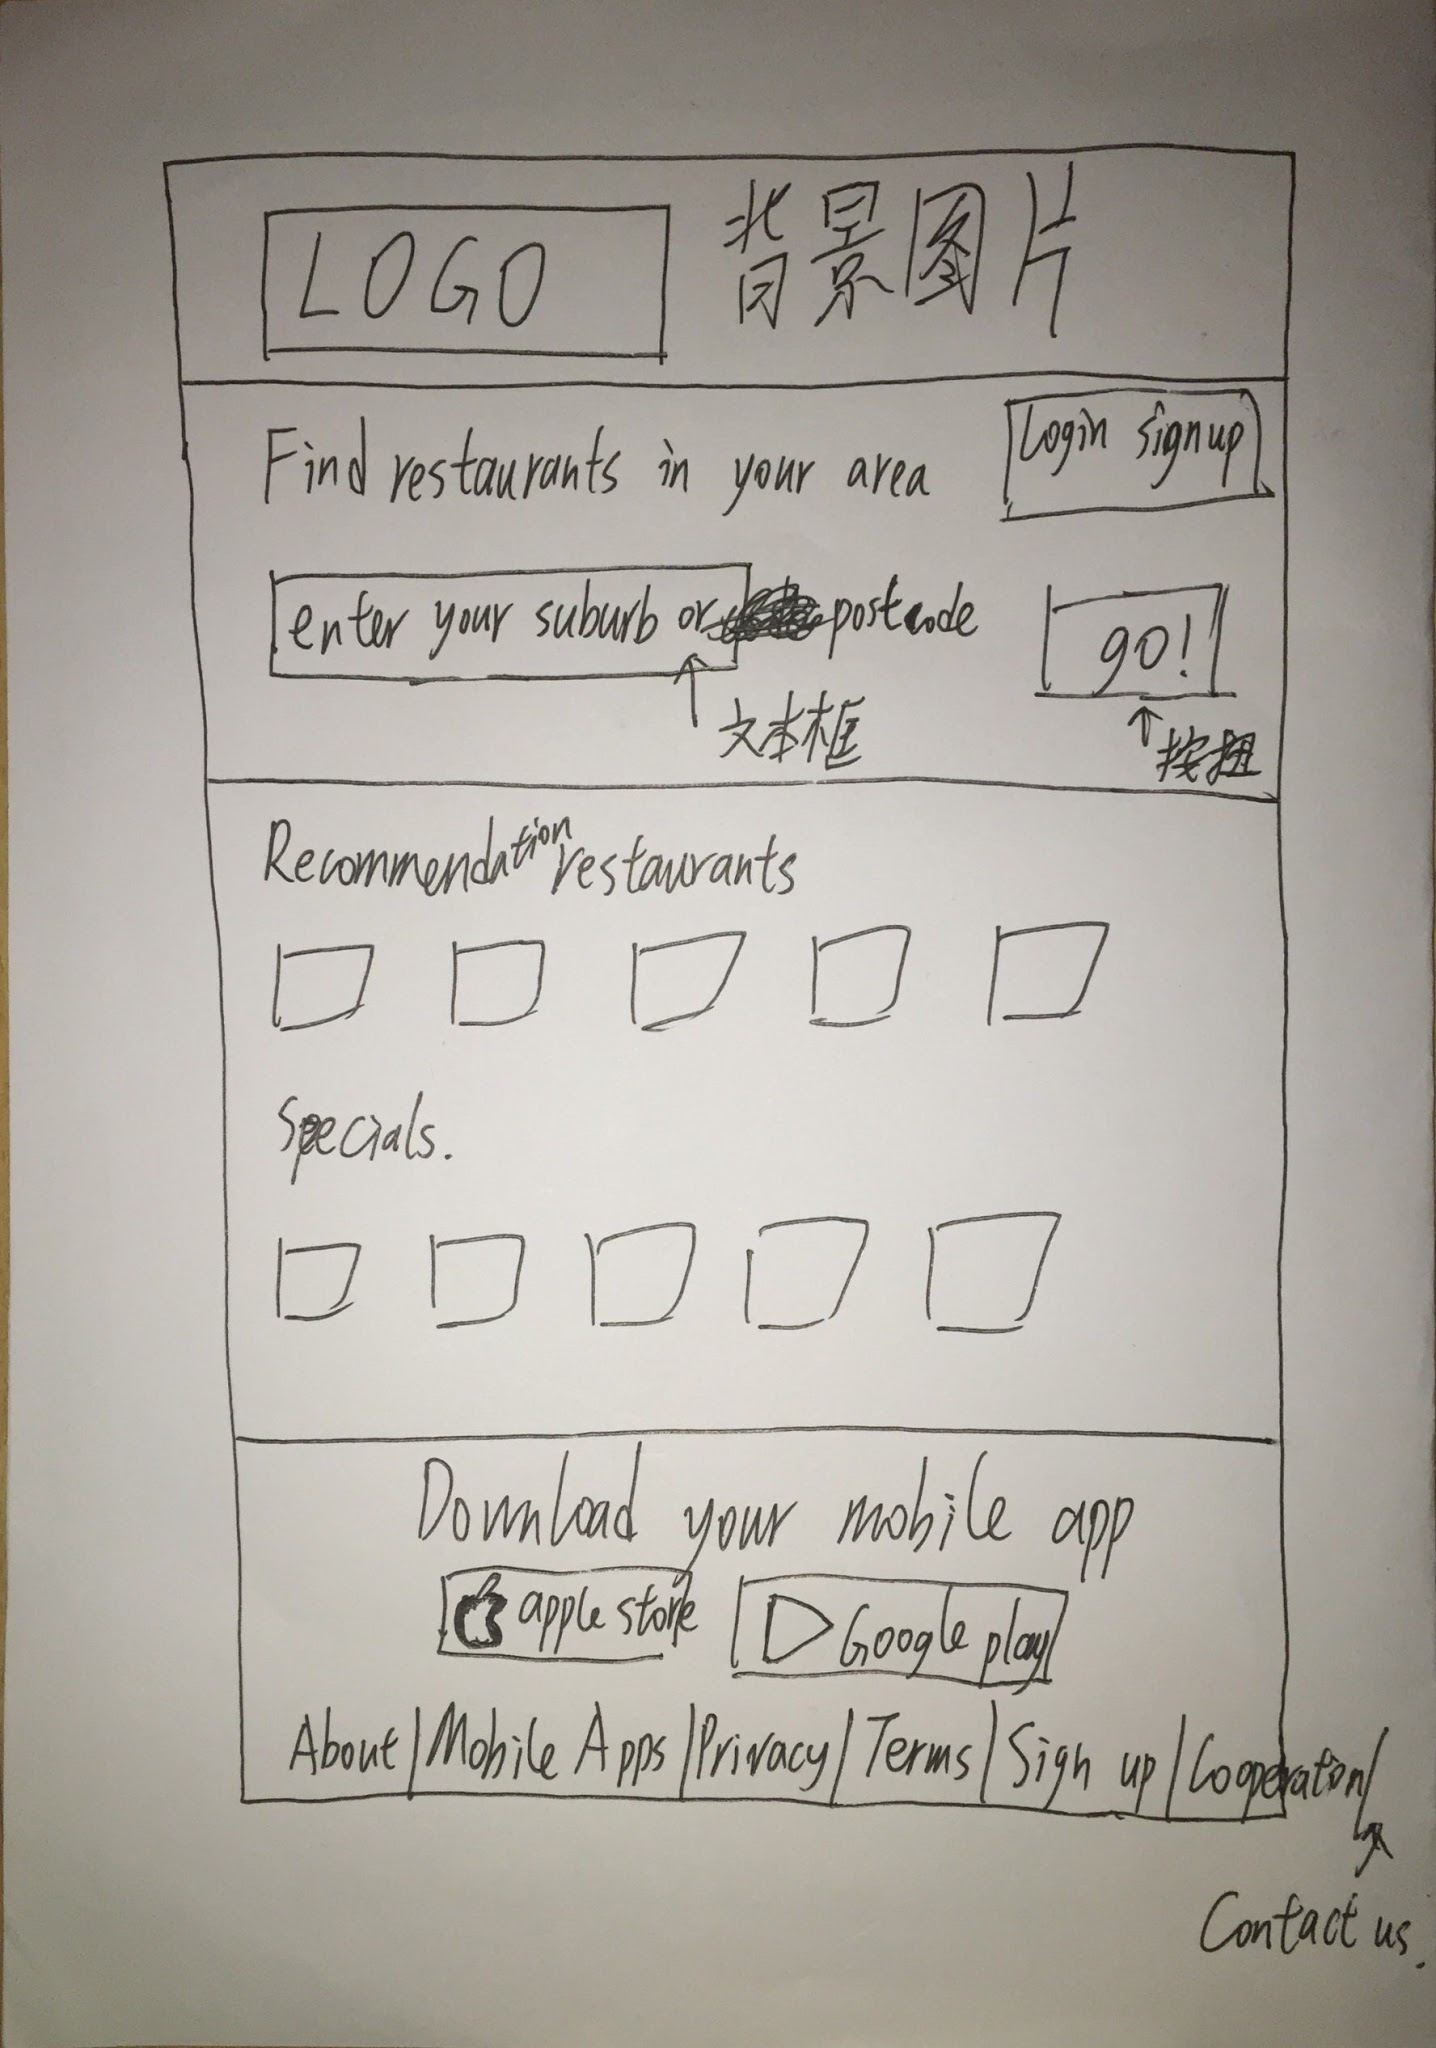 LOGO 背景图片
Find restaurants in your area
Login signup
enter your suburb or postcode
go!
文本框
按扭
Recommendation restaurants
Specials.
Download your mobile app
apple store
Google play
About | Mobile Apps | Privacy | Terms | Sign up | Cooperation |
Contact us.